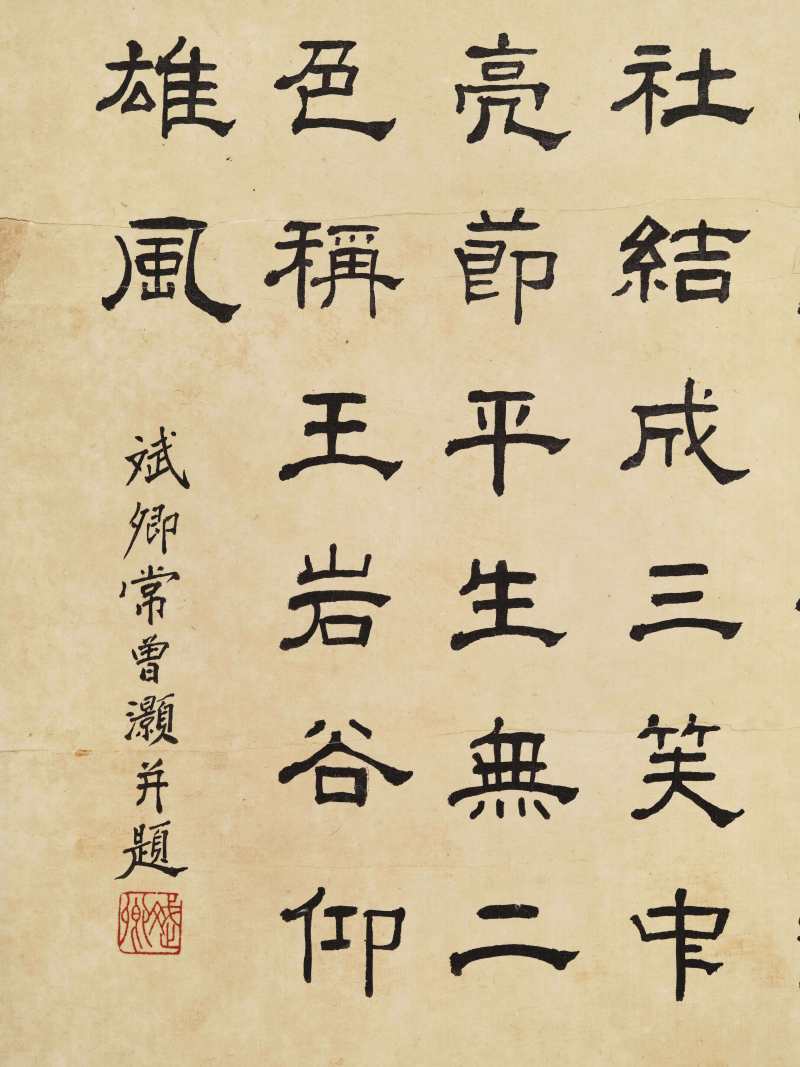 社結成三笑中
亮節平生無二
色稱王岩谷仰
雄風
斌卿常曾灝并題
斌卿